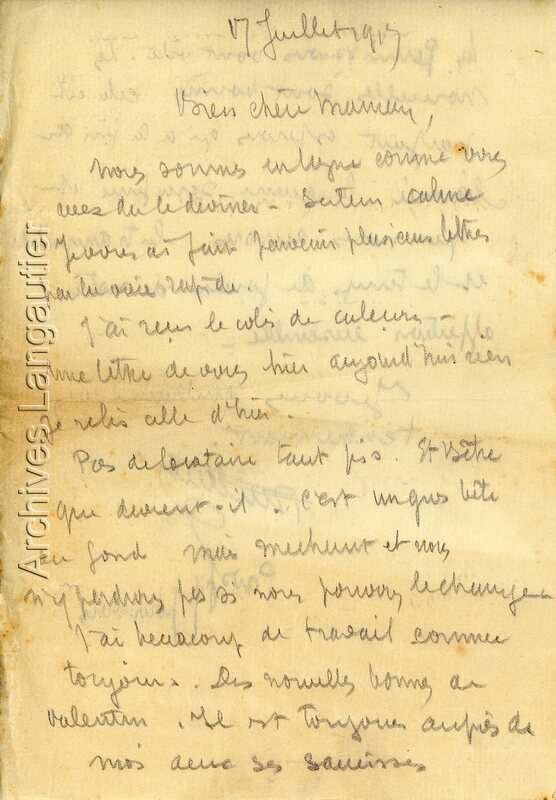 17 Juillet 1917
Bien chère Maman,
Nous sommes en ligne comme vous
avez dû le deviner - Secteur calme
Je vous ai fait parvenir plusieurs lettres
par la voie rapide.
J'ai reçu le colis de
une lettre de vous hier aujourd'hui rien
je relis celle d'hier.
Pas de locataire tant pis. Et Bêtre
que devient-il - c'est un gros bête
au fond mais méchant et nous
n'y perdrons pas si nous pouvons le changer
J'ai beaucoup de travail comme
toujours. Des nouvelles bonnes de
Valentin. Il est toujours auprès de
moi avec ses saucisses
Archives Langautier